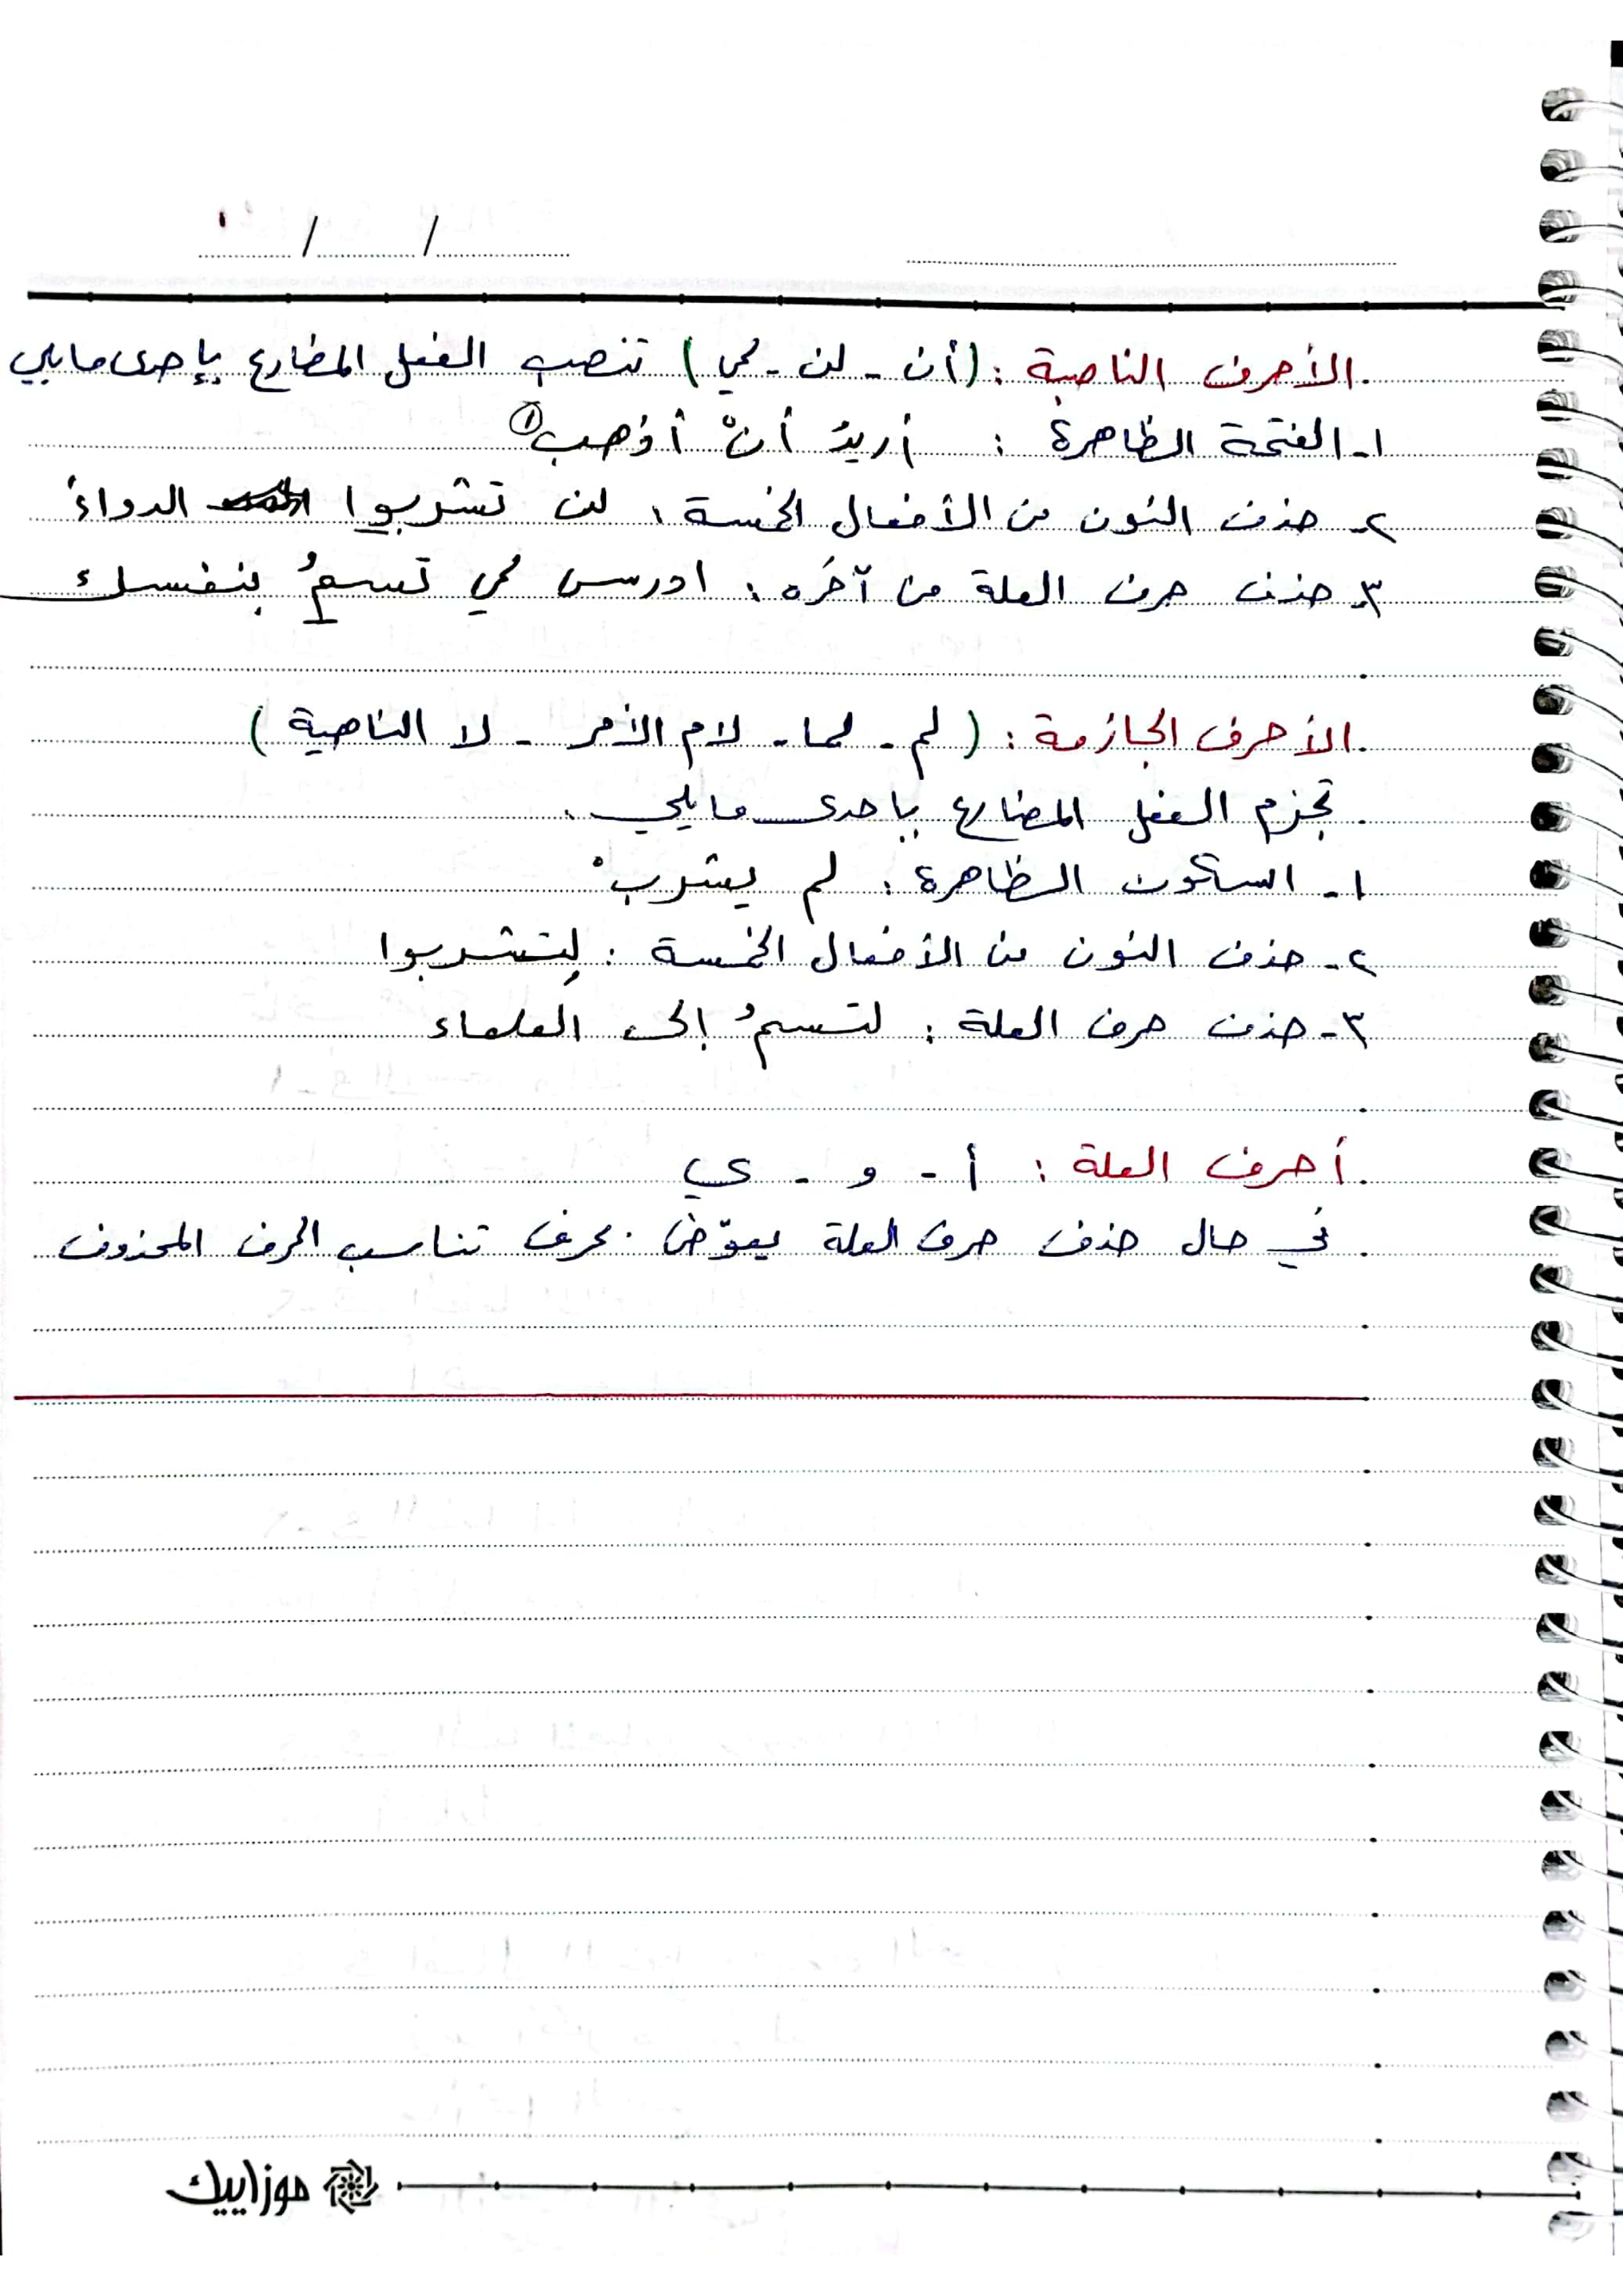 / /
الأحرف الناصبة : (أن - لن - كي) تنصب الفعل المضارع بإحدى مايلي
١- الفتحة الظاهرة : أريدُ أنْ أذهب ①
٢- حذف النون من الأفعال الخمسة : لن تشربوا الدواءَ
٣- حذف حرف العلة من آخره : ادرس كي تسمُ بنفسك
الأحرف الجازمة : (لم - لما - لام الأمر - لا الناهية)
تجزم الفعل المضارع باحدى مايلي :
١- السكون الظاهرة : لم يشربْ
٢- حذف النون من الأفعال الخمسة : لِتشربوا
٣- حذف حرف العلة : لتسمُ إلى العلماء
أحرف العلة : أ - و - ي
في حال حذف حرف العلة يعوّض بحرف تناسب الحرف المحذوف
موزاييك